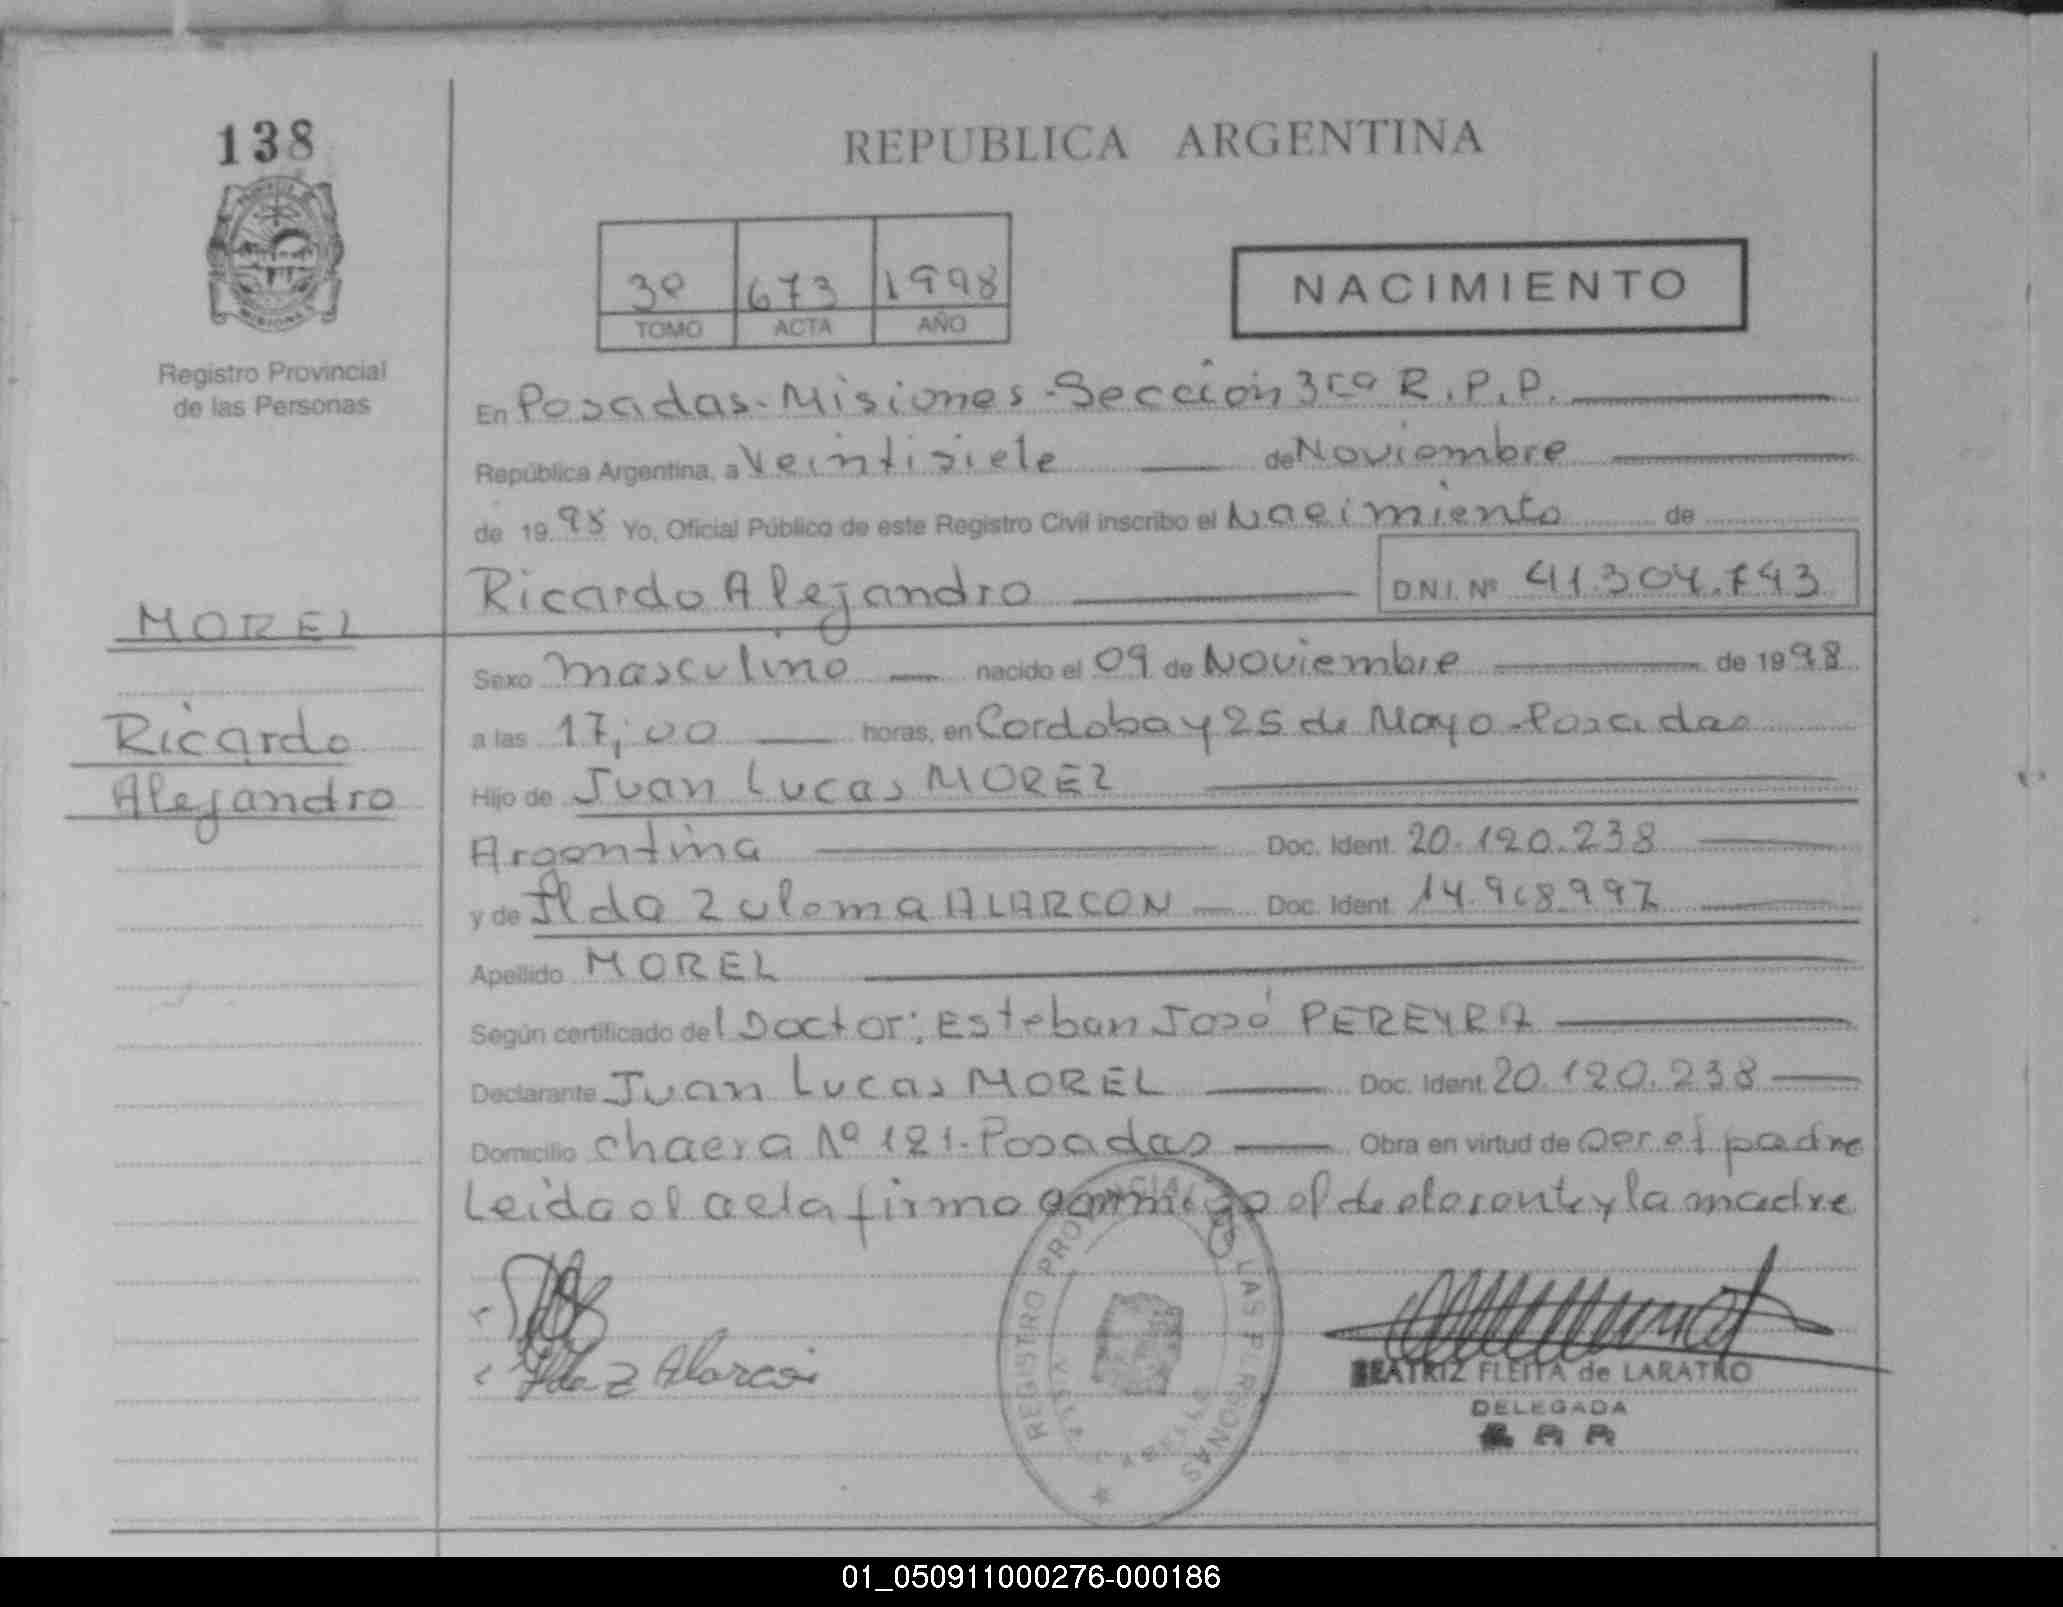 138
REPUBLICA ARGENTINA
3º 673 1998
TOMO ACTA AÑO
NACIMIENTO
Registro Provincial
de las Personas
En Posadas-Misiones-Sección 3ra R.P.P.
República Argentina, a Veintisiete de Noviembre
de 1998 Yo, Oficial Público de este Registro Civil inscribo el Nacimiento de
Ricardo Alejandro D.N.I. Nº 41.304.743
MOREL
Ricardo
Alejandro
Sexo masculino nacido el 09 de Noviembre de 1998
a las 17,00 horas, en Cordoba y 25 de Mayo-Posadas
Hijo de Juan Lucas MOREL
Argentina Doc. Ident. 20.120.238
y de Ilda Zulema ALARCON Doc. Ident. 14.968.997
Apellido MOREL
Según certificado del Doctor; Esteban José PEREYRA
Declarante Juan Lucas MOREL Doc. Ident. 20.120.238
Domicilio chacra Nº 121-Posadas Obra en virtud de ser el padre
Leida el acta firma conmigo el declarante y la madre
Ilda Z Alarcon
REGISTRO PROVINCIAL LAS PERSONAS
BEATRIZ FLEITA de LARATRO
DELEGADA
01_050911000276-000186